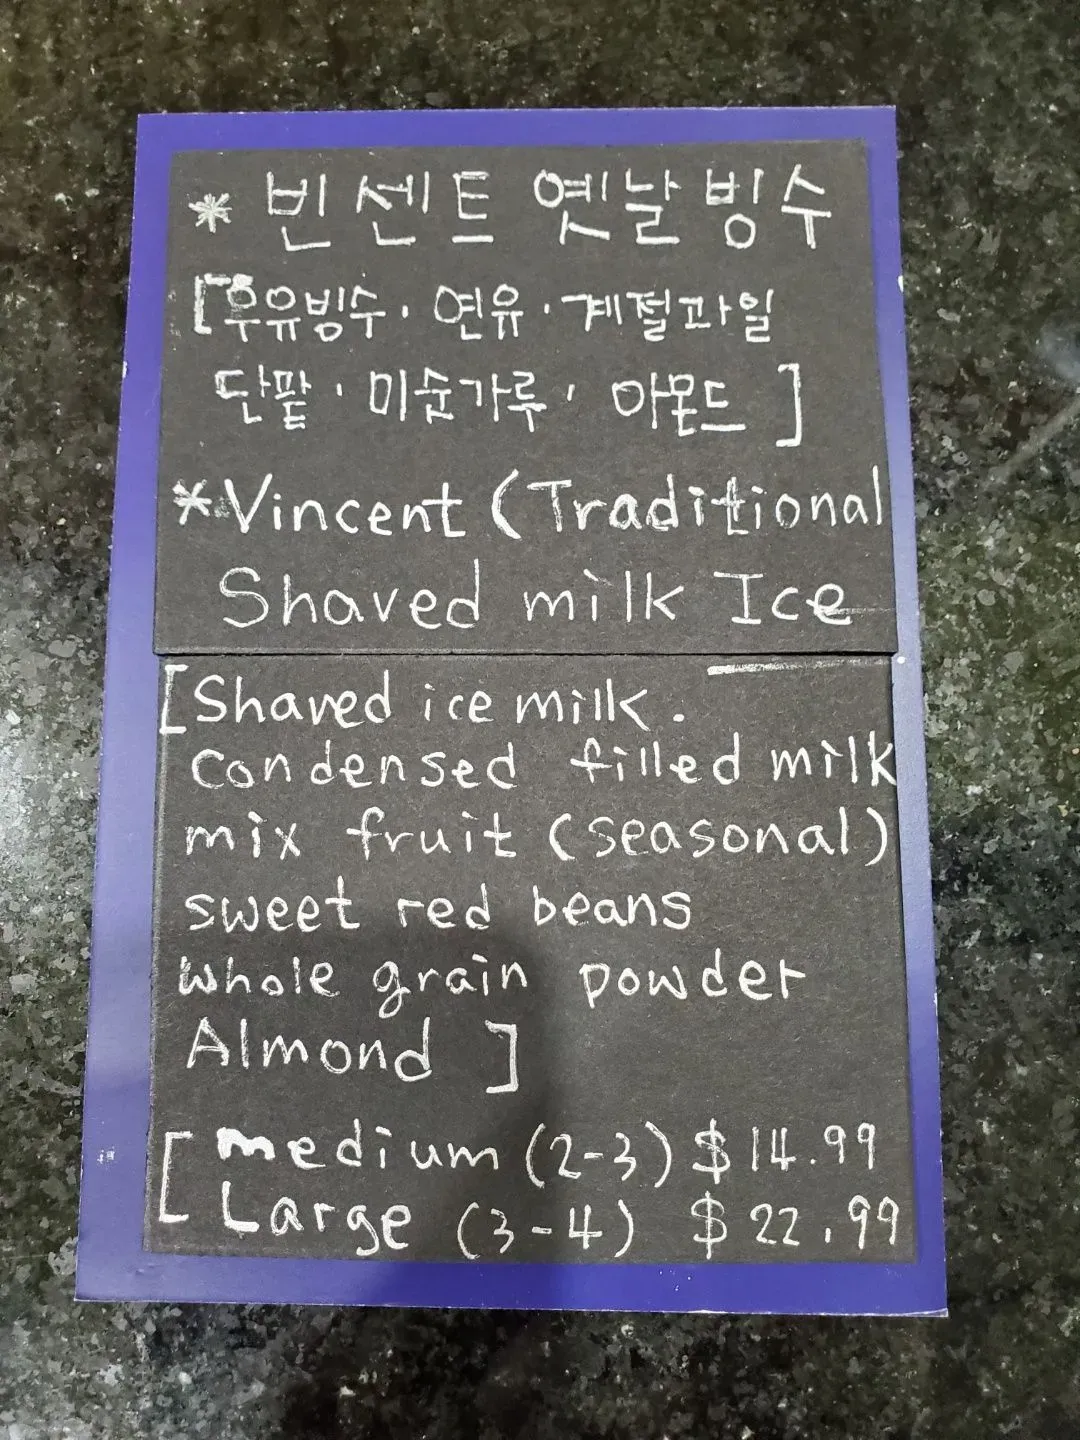 * 빈센트 옛날빙수
[우유빙수 · 연유 · 계절과일
단팥 · 미숫가루 · 아몬드 ]
* Vincent (Traditional
Shaved milk Ice
[Shaved ice milk.
condensed filled milk
mix fruit (seasonal)
sweet red beans
whole grain powder
Almond ]
[ medium (2-3) $14.99
Large (3-4) $22.99